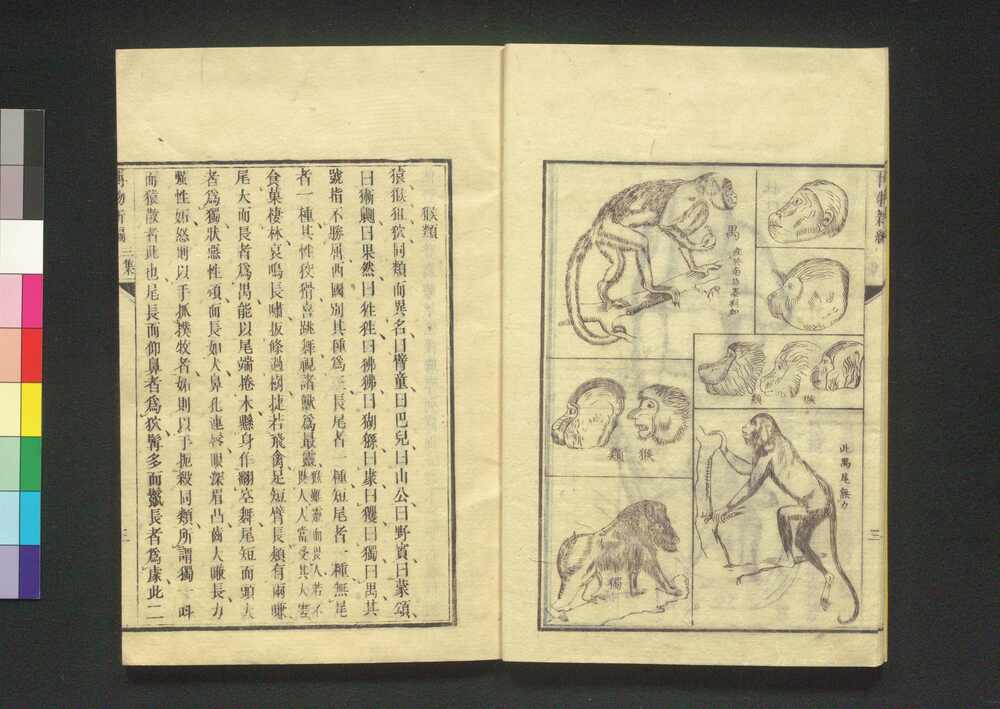 博物新編
禺
產於南亞墨利加
猴類
猴類
此禺尾無力
獨
三
猴類
猿猴狙狖同類而異名曰臂童曰巴兒曰山公曰野賓曰蒙頌
曰果然曰狌狌曰狒狒曰猢猻曰豦曰玃曰獨曰禺其
號指不勝屈西國別其種為三長尾者一種短尾者一種無尾
者一種其性狡猾喜跳舞視諸獸為最靈猴雖靈而畏人若不
畏人人當受其大害
食菓棲林哀鳴長嘯扳條過樹捷若飛禽足短臂長頰有兩嗛
尾大而長者為禺能以尾端捲木懸身作翻空舞尾短而頭大
者為獨狀惡性頑面長如犬鼻孔連唇眼深眉凸齒大嗛長力
性妬怒則以手抓撲牧者妬則以手扼殺同類所謂獨一叫
而猿散者此也尾長而仰鼻者為狖髯多而鬣長者為豦此二
博物新編
三集
三